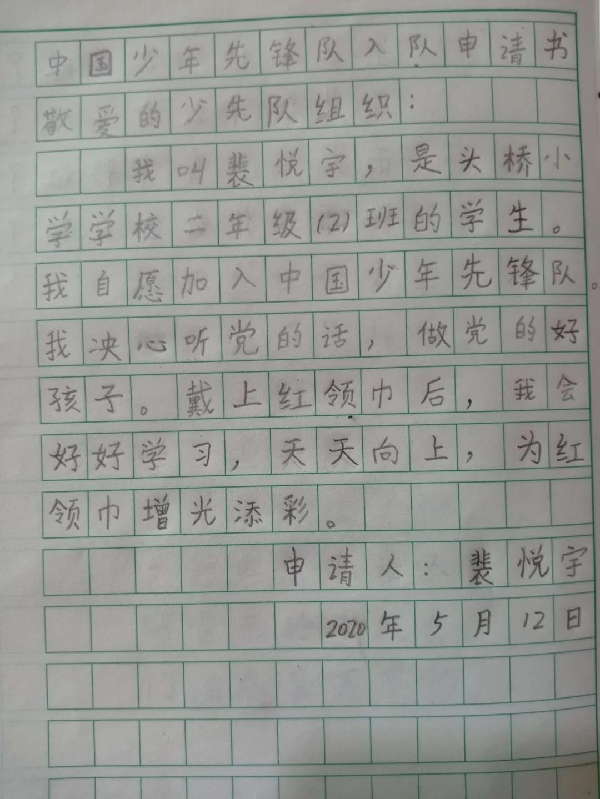 中国少年先锋队入队申请书
敬爱的少先队组织：
我叫裴悦宇，是头桥小
学学校二年级(2)班的学生。
我自愿加入中国少年先锋队。
我决心听党的话，做党的好
孩子。戴上红领巾后，我会
好好学习，天天向上，为红
领巾增光添彩。
申请人：裴悦宇
2020年5月12日